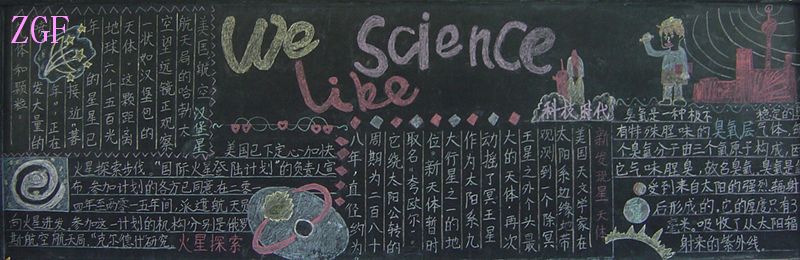 ZGF
We
like
science
美国航空
航天局的哈勃太
空望远镜正观察
一状如汉堡包的
天体,这颗距离
地球六千五百光
年的星星已
接近"暮
年",正在
发大量的
体和颗粒。
汉堡星
科技时代
新发现星一天体
美国天文学家在
太阳系边缘地带
观测到个除冥
王星之外个头最
大的天体,再次
动摇了冥王星
作为太阳系九
大行星之一的地
位。新天体暂时
取名"夸欧尔",
它绕太阳公转的
周期为二百八十
八年,直径约为
美国已下定心加快
火星探索步伐。"国际火星登陆计划"的负责人宣
布,参加计划的各方已同意在二零一
四年至两零一五年间,派遣航天员
向火星进发,参加这一计划的机构分别是俄罗
斯航空航天局、"克尔德什研究
火星探索
臭氧是一种极不稳定的
有特殊腥味的臭氧层气体,
个臭氧分子由三个氧原子构成,因
它气味腥臭,故名臭氧,臭氧是
受到来自太阳的强烈辐射
后形成的,它的厚度只有3
毫米。吸收了从太阳辐
射来的紫外线.